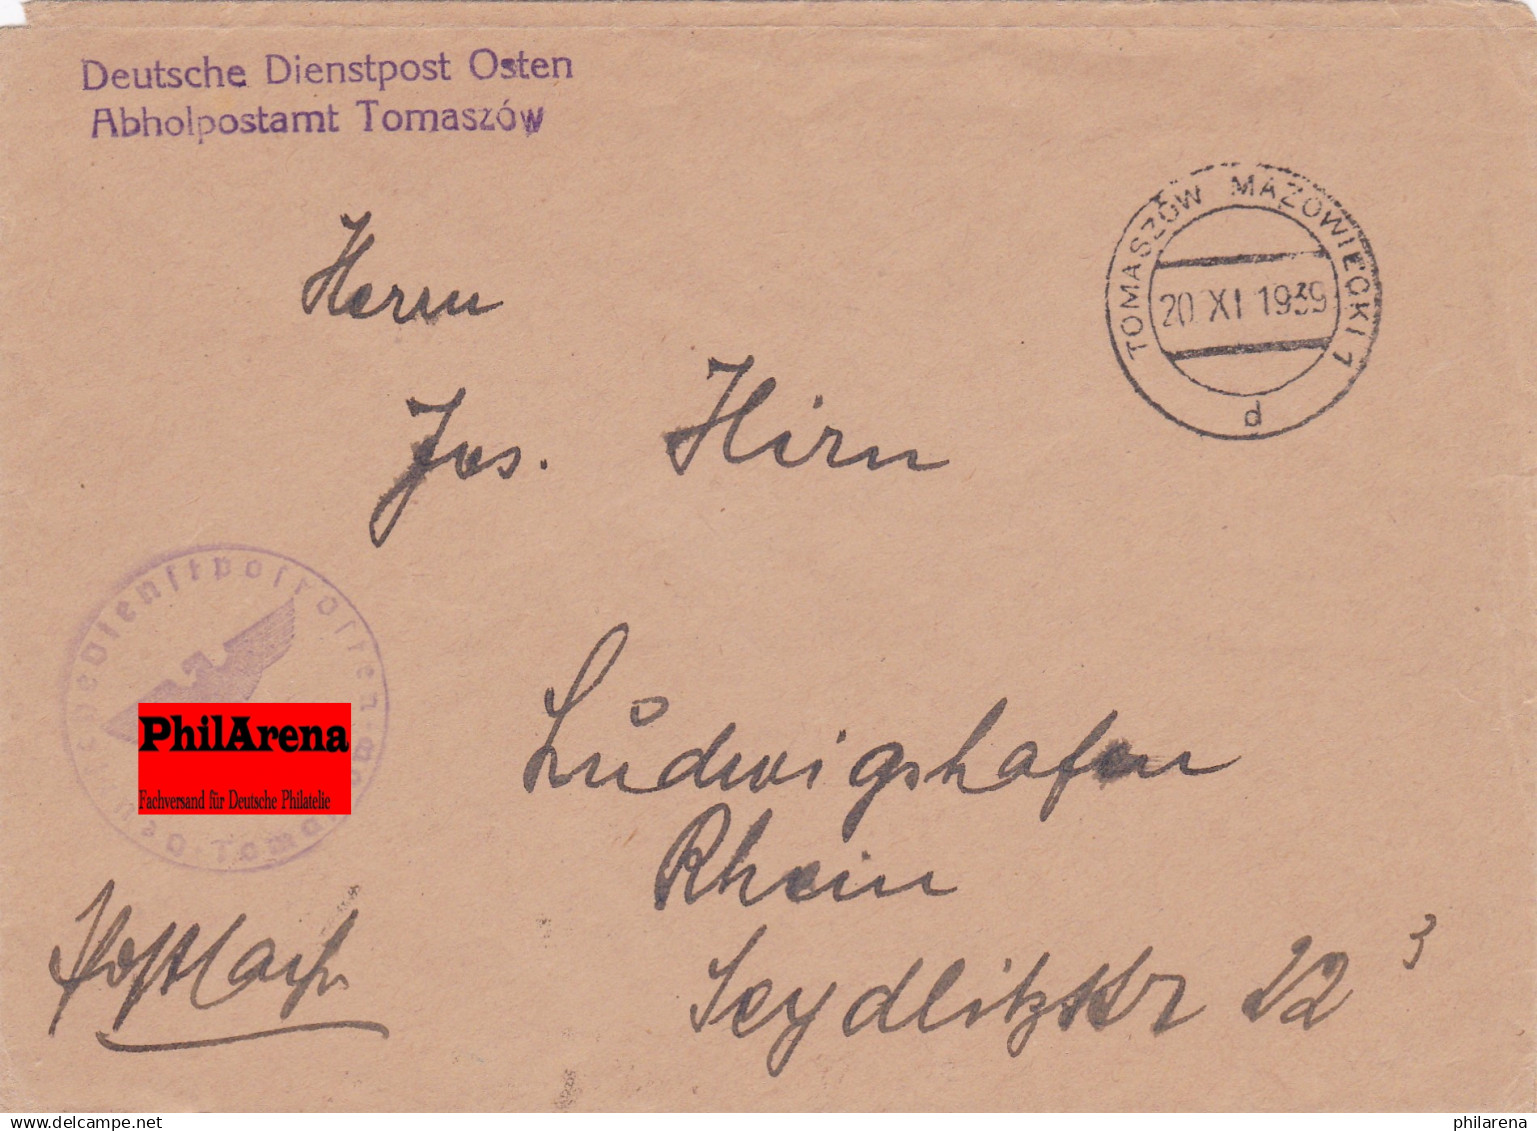 Deutsche Dienstpost Osten
Abholpostamt Tomaszów
TOMASZÓW MAZOWIECKI 1
20 XI 1939
d
Herrn
Jos. Hirn
Dienstpost Osten
PhilArena
Fachversand für Deutsche Philatelie
Ludwigshafen
Rhein
Seydlitzstr 22 3
www.delcampe.net
philarena